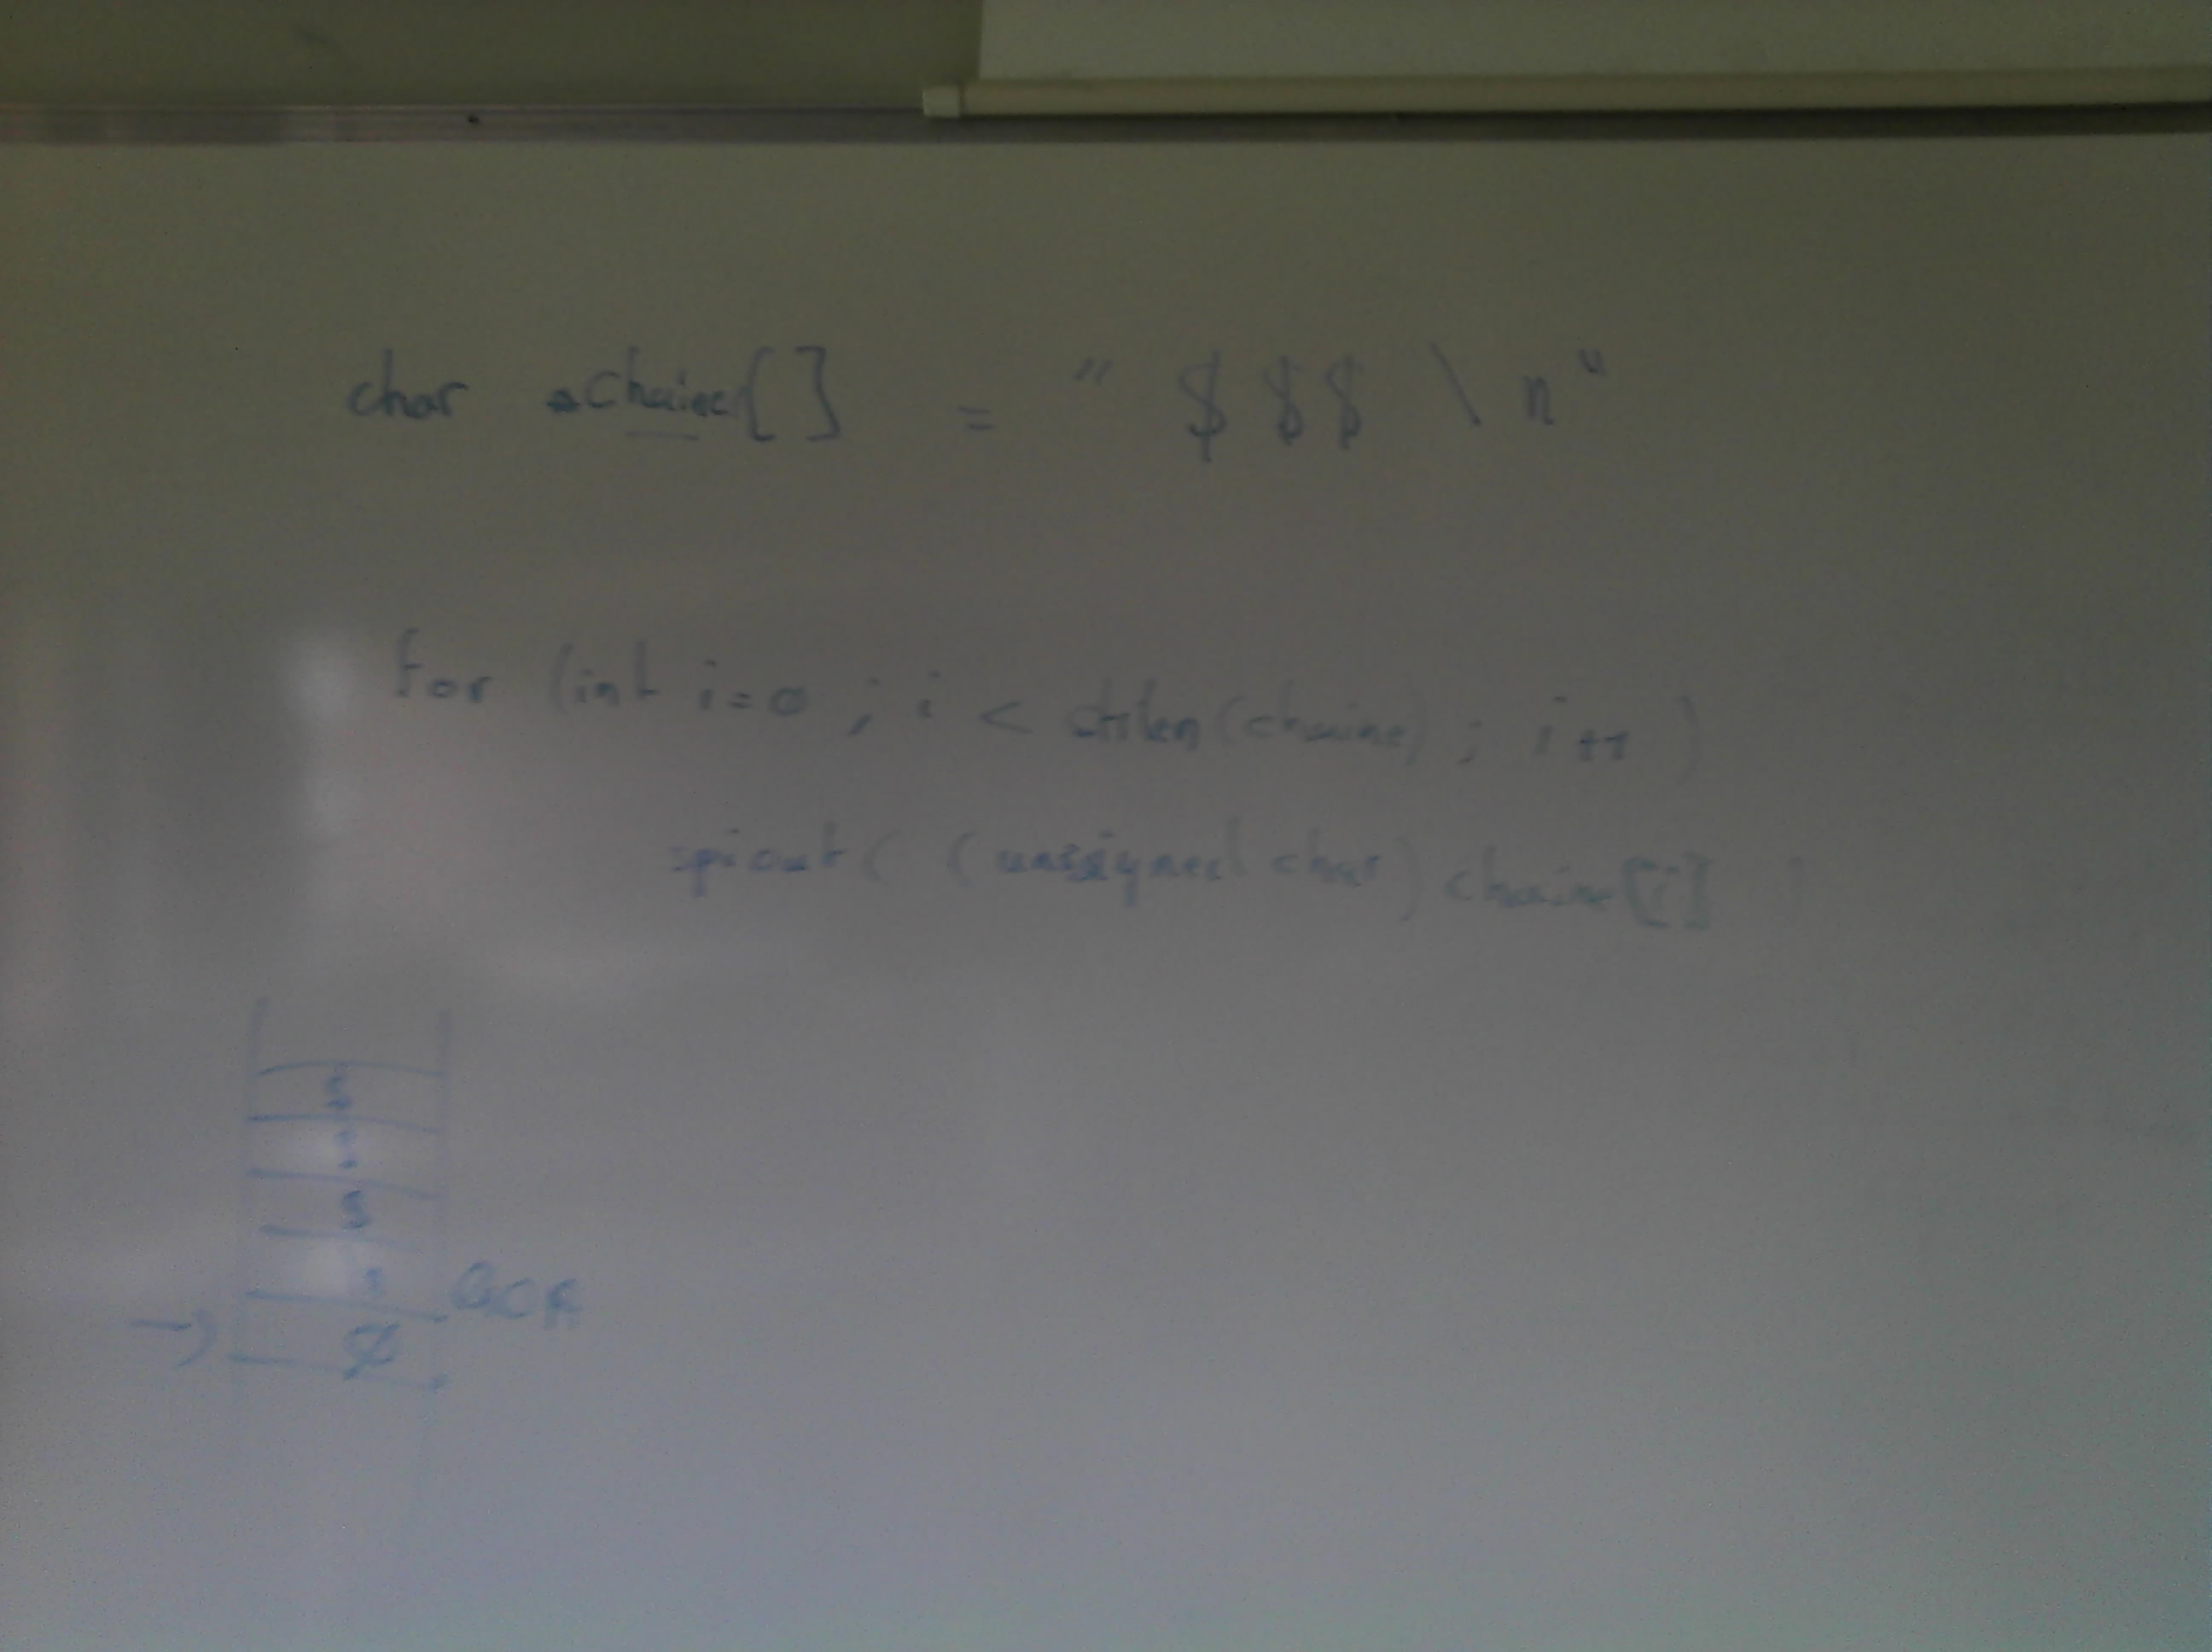 char chaine[] = "$$$ \n"
for (int i=0 ; i < strlen(chaine) ; i++ )
spiout( (unsigned char) chaine[i]
S
S
Ø